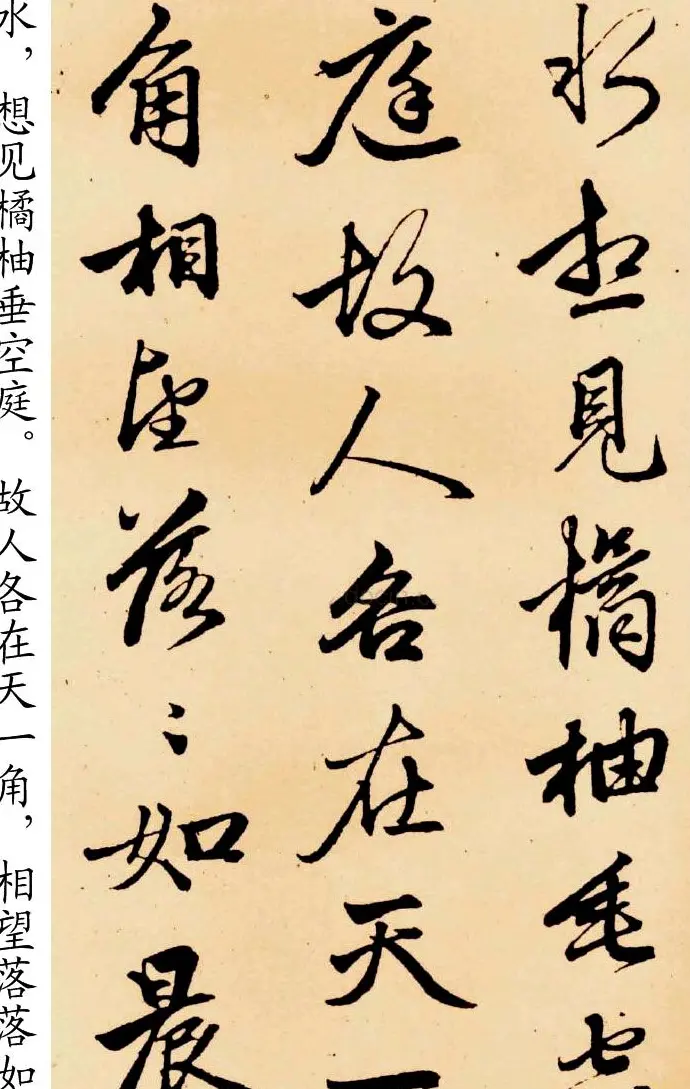 水想見橘柚垂空
庭故人各在天一
角相望落〻如晨
水，想见橘柚垂空庭。故人各在天一角，相望落落如